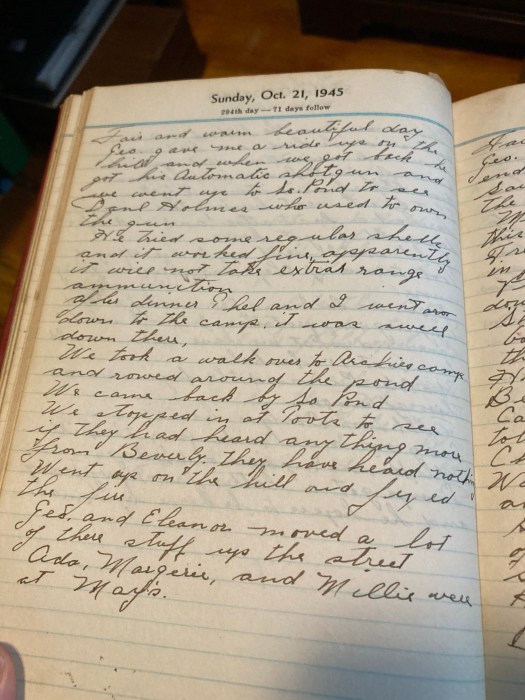 Sunday, Oct. 21, 1945
294th day — 71 days follow
Fair and warm beautiful day
Geo. gave me a ride up on the
hill and when we got back he
got his Automatic shotgun and
we went up to So. Pond to see
Holmes who used to own
the gun.
He tried some regular shells
and it worked fine, apparently
it will not take extra range
ammunition
after dinner Phel and I went
down to the camp, it was swell
down there,
We took a walk over to Archies camp
and rowed around the pond
We came back by So Pond
We stopped in at Toots to see
if they had heard any thing more
from Beverly. they have heard nothing
Went up on the hill and fixed
the fire
Geo. and Eleanor moved a lot
of there stuff up the street
Ada, Margerie, and Millie were
at May's.
Geo.
the
in